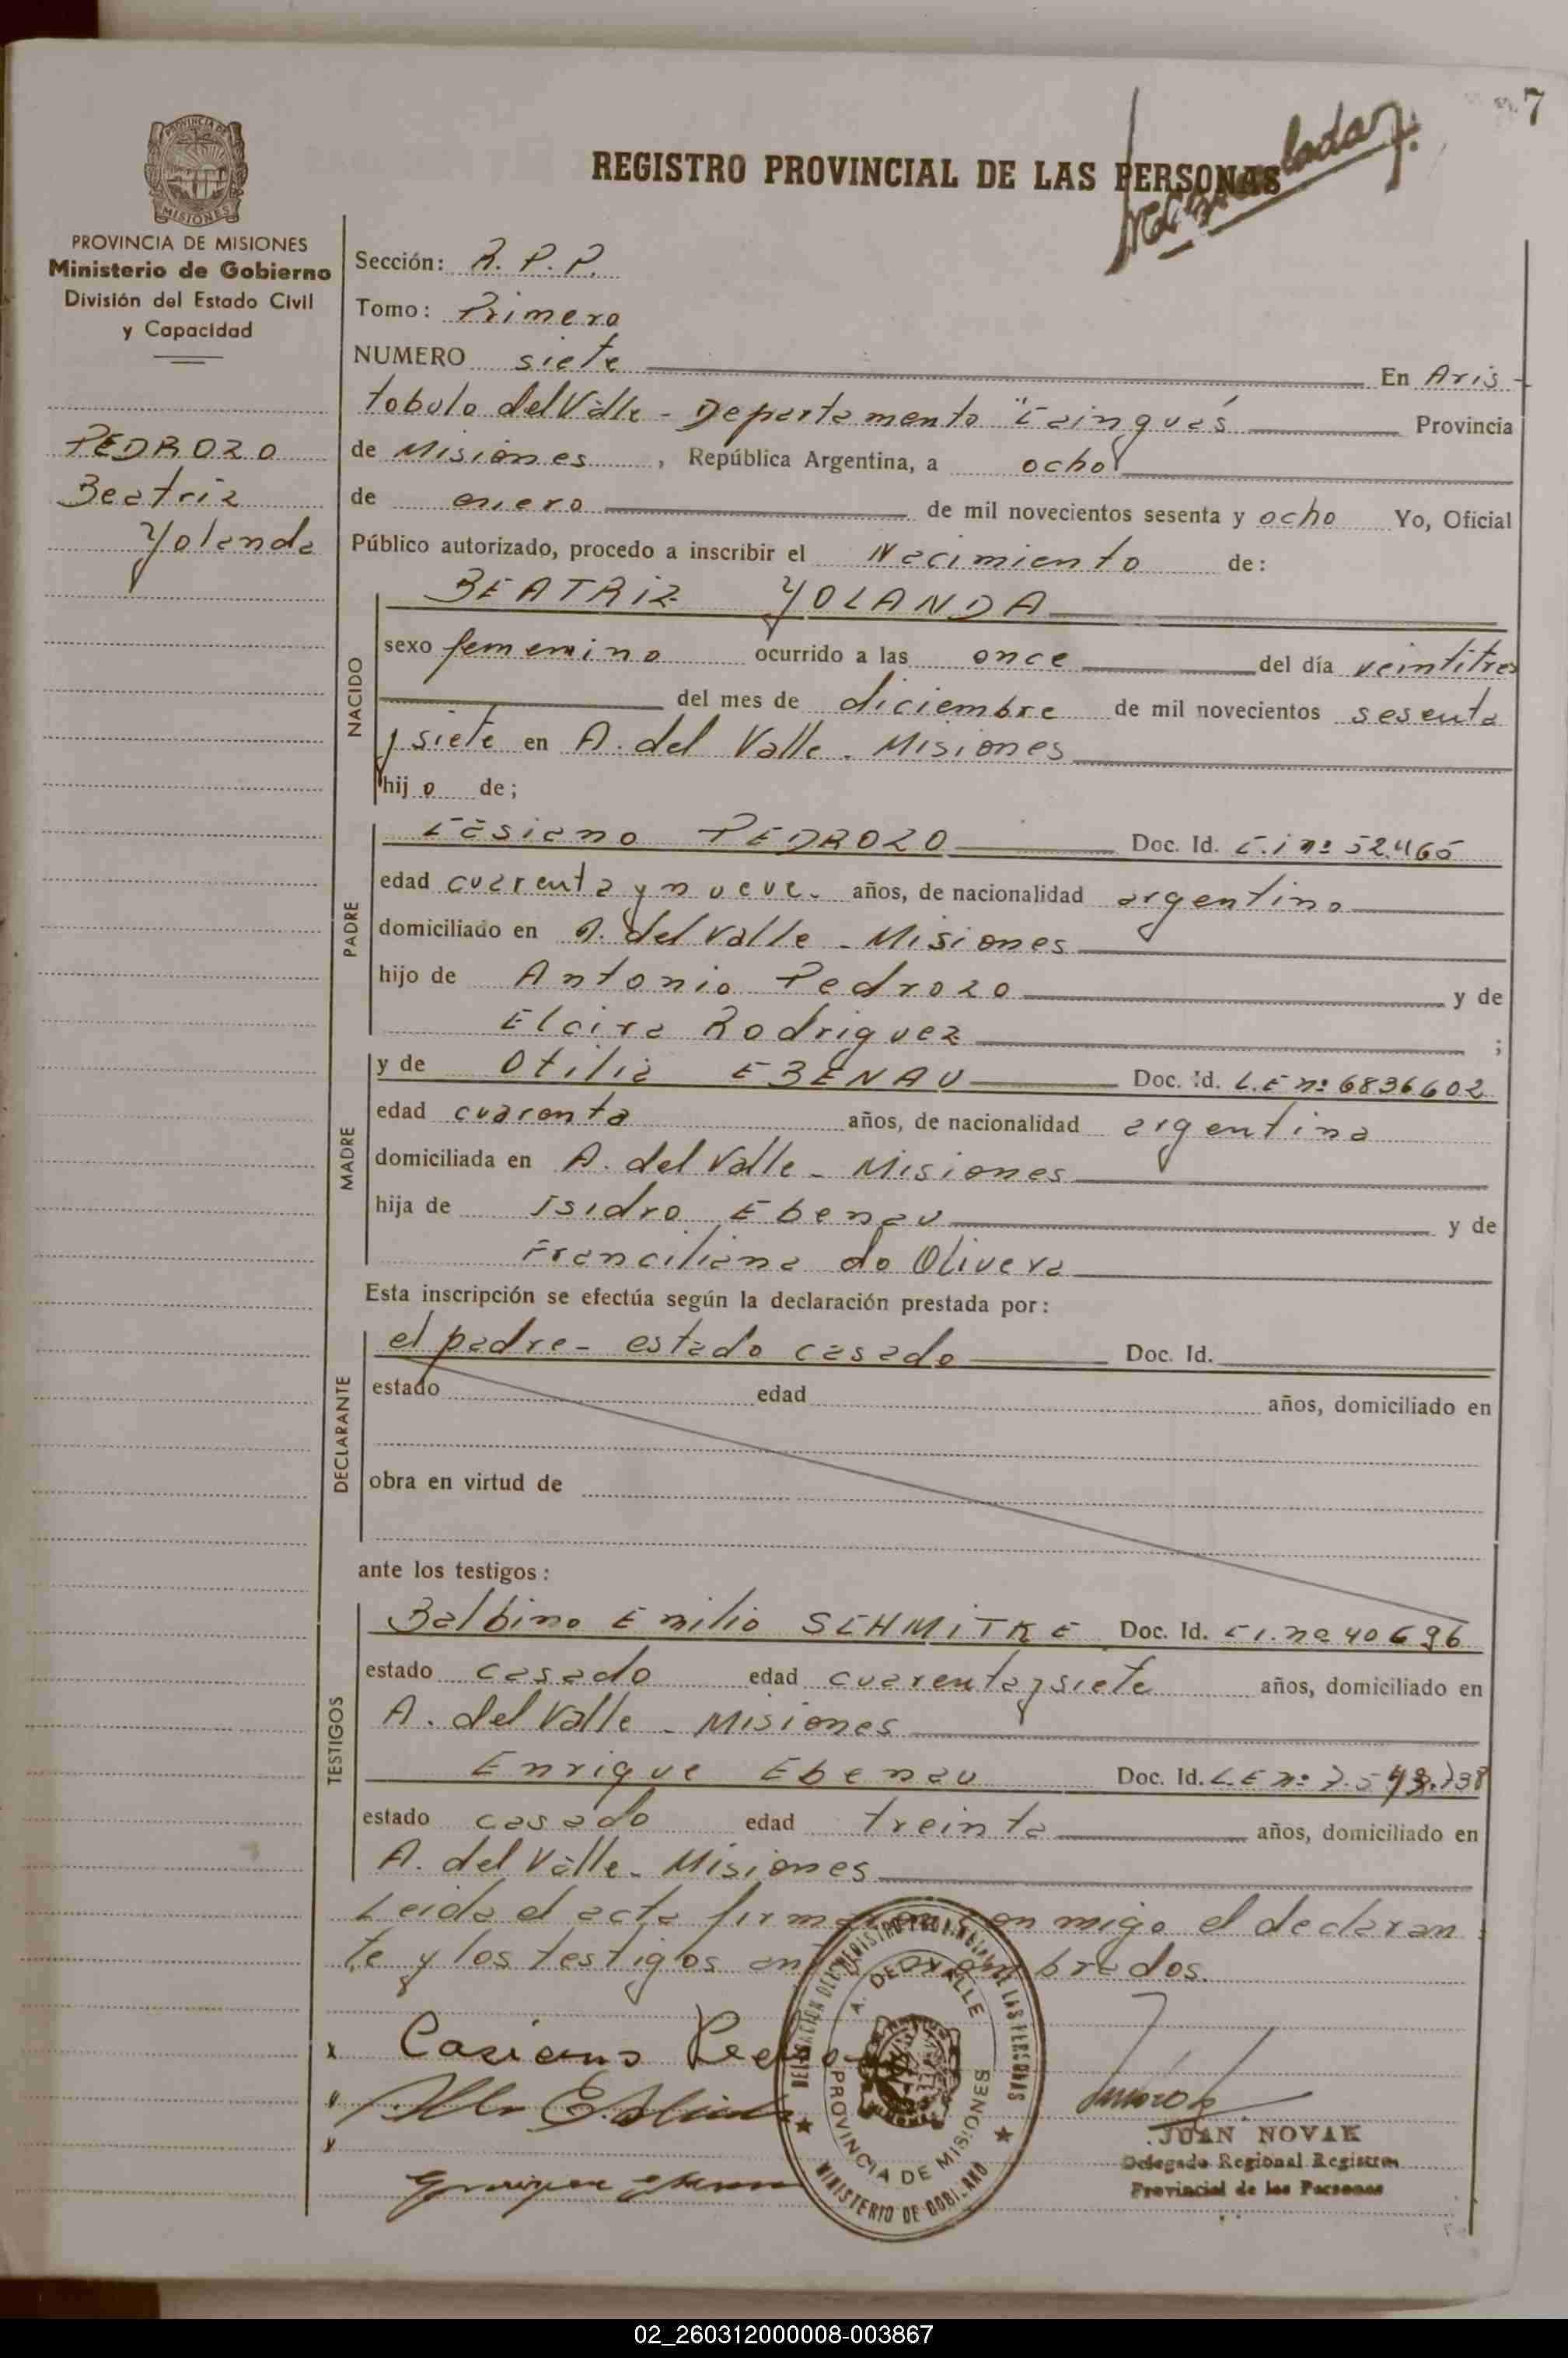 7
REGISTRO PROVINCIAL DE LAS PERSONAS
PROVINCIA DE
MISIONES
PROVINCIA DE MISIONES
Ministerio de Gobierno
División del Estado Civil
y Capacidad
PEDROZO
Beatriz
Yolanda
Sección: R. P. P.
Tomo: Primero
NUMERO siete En Aris-
tobulo del Valle - Departamento "Cainguás Provincia
de Misiones, República Argentina, a ocho
de enero de mil novecientos sesenta y ocho Yo, Oficial
Público autorizado, procedo a inscribir el Nacimiento de:
NACIDO
BEATRIZ YOLANDA
sexo femenino ocurrido a las once del día veintitres
del mes de diciembre de mil novecientos sesenta
y siete en A. del Valle - Misiones
hij o de;
PADRE
Casiano PEDROZO Doc. Id. C.i nº 52.465
edad cuarenta y nueve. años, de nacionalidad argentino
domiciliado en A. del Valle - Misiones
hijo de Antonio Pedrozo y de
Elcira Rodriguez ;
MADRE
y de Otilia EBENAU Doc. Id. L.E nº 6836602
edad cuarenta años, de nacionalidad argentina
domiciliada en A. del Valle - Misiones
hija de Isidro Ebenau y de
Franciliana do Olivera
Esta inscripción se efectúa según la declaración prestada por:
DECLARANTE
el padre - estado casado Doc. Id.
estado edad años, domiciliado en
obra en virtud de
ante los testigos:
TESTIGOS
Balbino Emilio SCHMITKE Doc. Id. C.I. nº 40696
estado casado edad cuarenta y siete años, domiciliado en
A. del Valle - Misiones
Enrique Ebenau Doc. Id. L.E nº
estado casado edad treinta años, domiciliado en
A. del Valle - Misiones
Leida el acta firman conmigo el declaran
te y los testigos nombrados.
Casiano
DELEGACION DEL REGISTRO PROVINCIAL DE LAS PERSONAS
A. DEL VALLE
PROVINCIA DE MISIONES
MINISTERIO DE GOBIERNO
JUAN NOVAK
Delegado Regional Registro
Provincial de las Personas
02_260312000008-003867